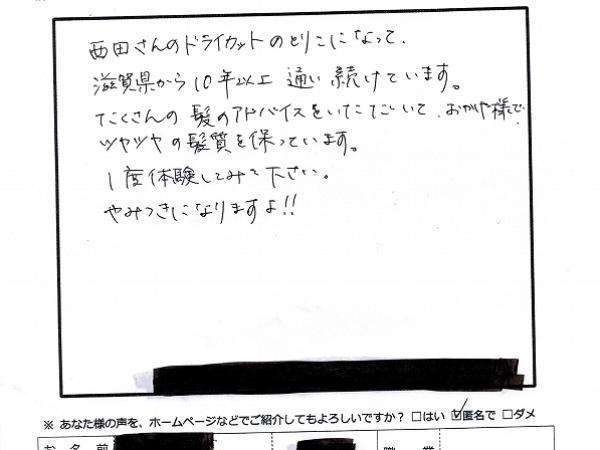 西田さんのドライカットのとりこになって、
滋賀県から10年以上 通い続けています。
たくさんの髪のアドバイスをいただいて、おかげ様で、
ツヤツヤの髪質を保っています。
1度体験してみて下さい。
やみつきになりますよ!!
※ あなた様の声を、ホームページなどでご紹介してもよろしいですか？ □はい ☑匿名で □ダメ
お 名 前
職 業